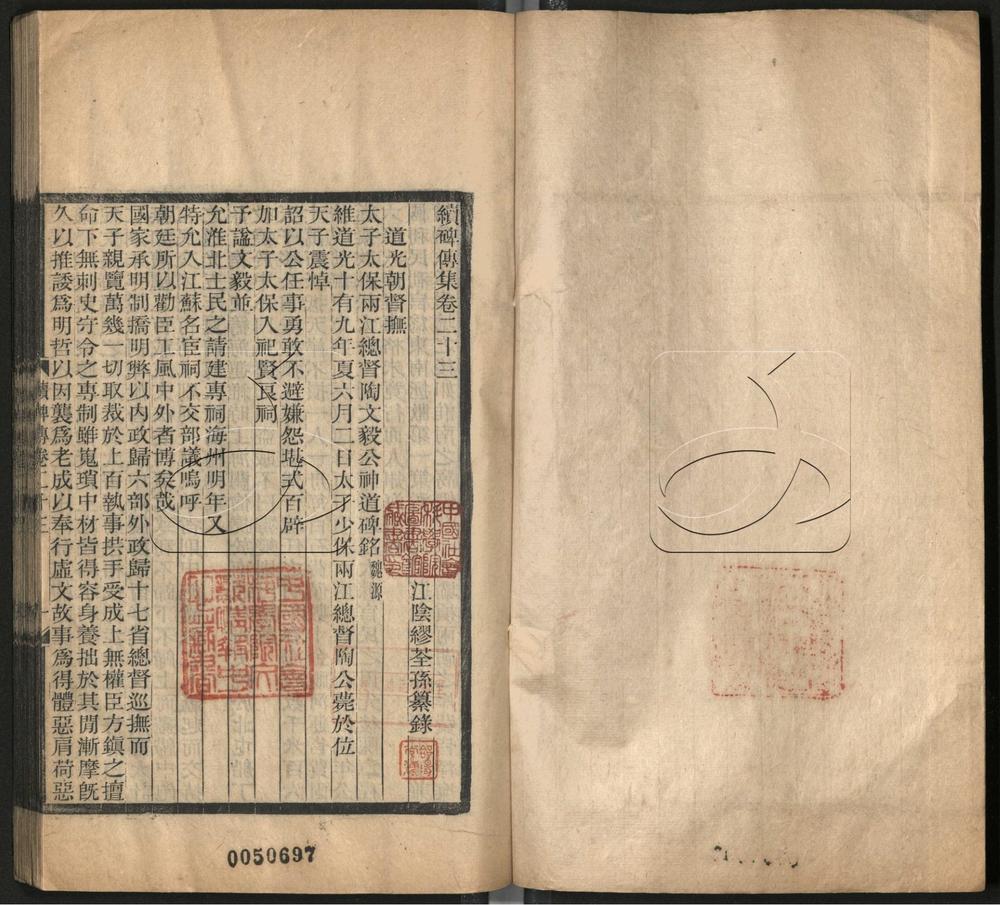 續碑傳集卷二十三
江陰繆荃孫纂錄
道光朝督撫
太子太保兩江總督陶文毅公神道碑銘 魏源
維道光十有九年夏六月二日太子少保兩江總督陶公薨於位
天子震悼
詔以公任事勇敢不避嫌怨堪式百辟
加太子太保入祀賢良祠
予諡文毅並
允淮北士民之請建專祠海州明年又
特允入江蘇名宦祠不交部議嗚呼
朝廷所以勸臣工風中外者博矣哉
國家承明制矯明弊以內政歸六部外政歸十七省總督巡撫而
天子親覽萬幾一切取裁於上百執事拱手受成上無權臣方鎮之擅
命下無刺史守令之專制雖嵬瑣中材皆得容身養拙於其閒漸摩旣
久以推諉爲明哲以因襲爲老成以奉行虛文故事爲得體惡肩荷惡
續碑傳卷二十三
一
0050697